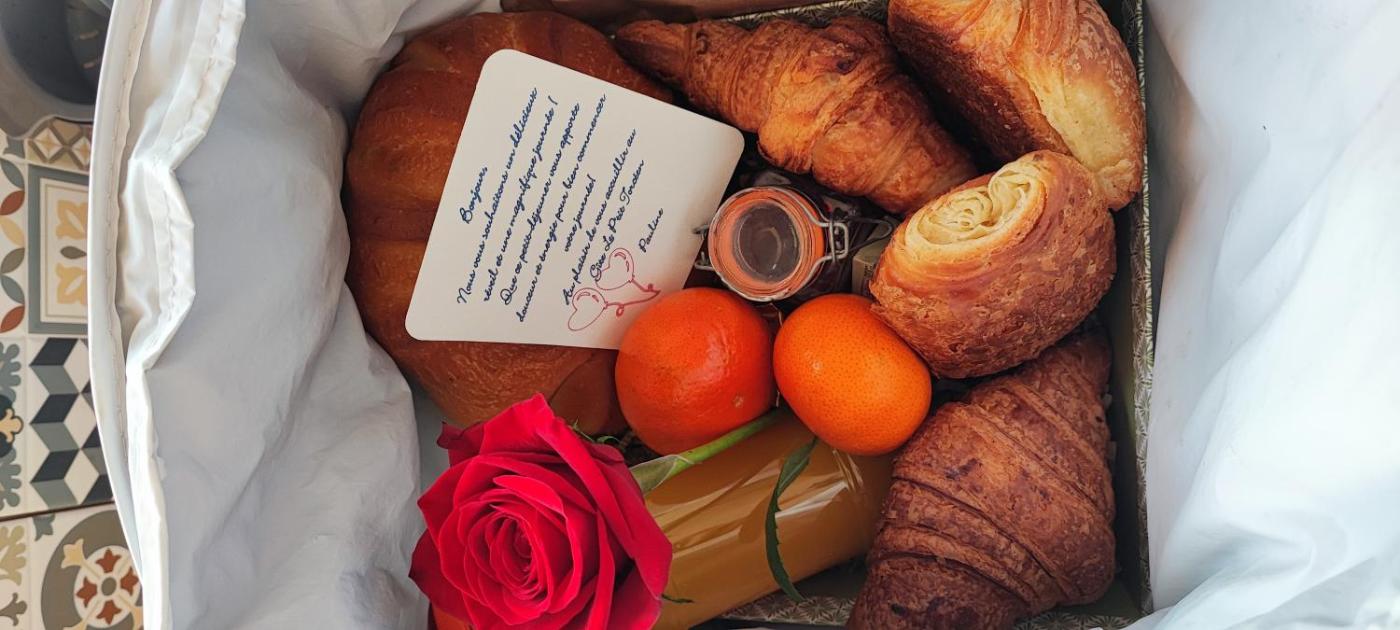 Bonjour
Nous vous souhaitons un délicieux
réveil et une magnifique journée !
Que ce petit-déjeuner vous apporte
douceur et énergie pour bien commencer
votre journée!
Au plaisir de vous accueillir au
Gîte Le Petit
Pauline